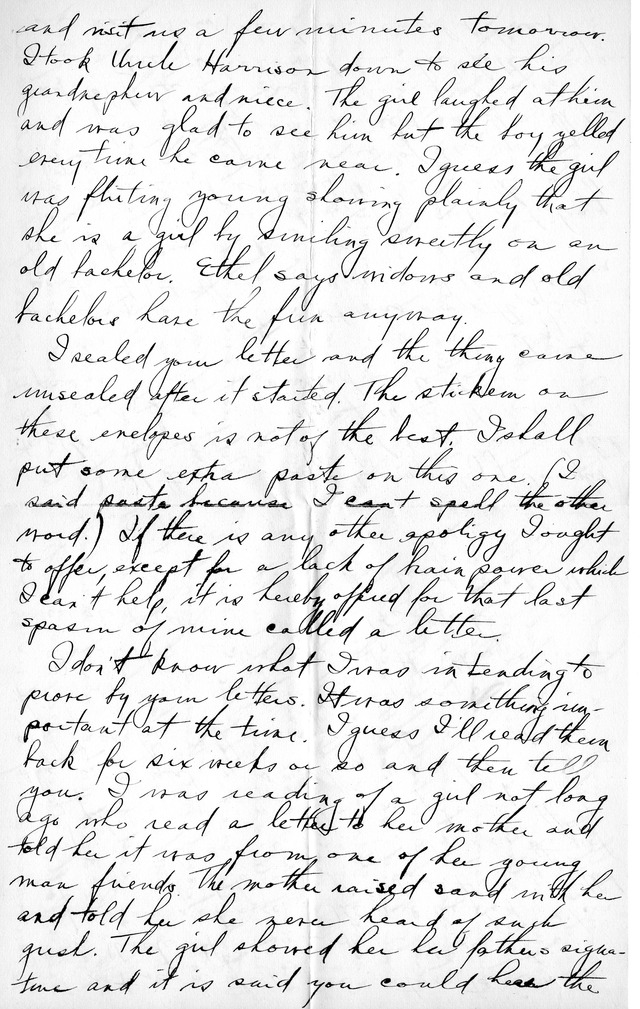 and visit us a few minutes tomorrow.
I took Uncle Harrison down to see his
grandnephew and niece. The girl laughed at him
and was glad to see him but the boy yelled
every time he came near. I guess the girl
was flirting young showing plainly that
she is a girl by smiling sweetly on an
old bachelor. Ethel says widows and old
bachelors have the fun anyway.
I sealed your letter and the thing came
unsealed after it started. The stickem on
these enelopes is not of the best. I shall
put some extra paste on this one. (I
said paste because I can't spell the other
word.) If there is any other apoligy I ought
to offer, except for a lack of brain power which
I can't help, it is hereby offered for that last
spasm of mine called a letter.
I don't know what I was intending to
prove by your letters. It was something im-
portant at the time. I guess I'll read them
back for six weeks or so and then tell
you. I was reading of a girl not long
ago who read a letter to her mother and
told her it was from one of her young
man friends. The mother raised sand with her
and told her she never heard of such
gush. The girl showed her her father's signa-
ture and it is said you could hear the